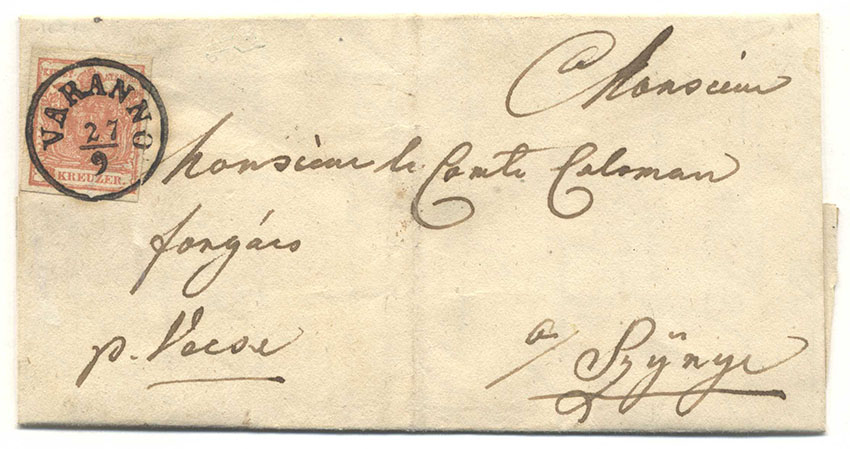 VARANNO
27
9
KREUZER.
a Monsieur
Monsieur le Comte Coloman
forgács
p. Vecse
a/ Szÿnye